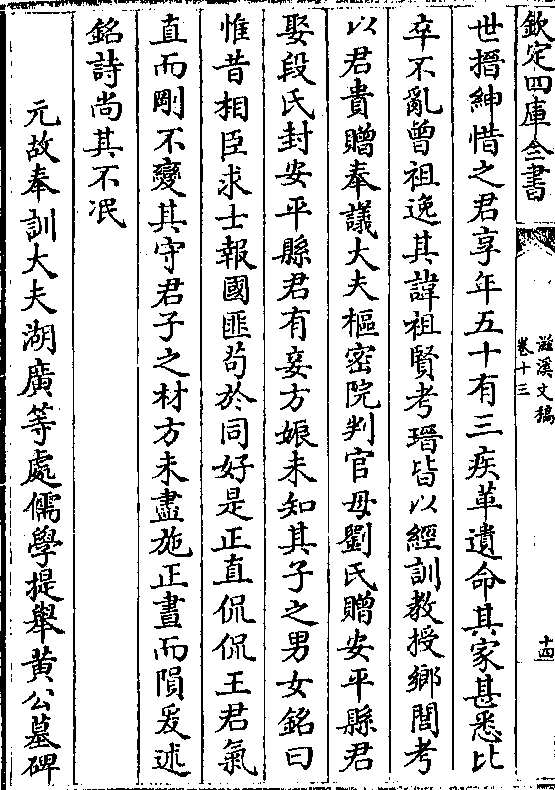 欽定四庫全書
滋溪文稿
卷十三
十四
世搢紳惜之君享年五十有三疾革遺命其家甚悉比
卒不亂曾祖逸其諱祖賢考瑨皆以經訓教授鄉閭考
以君貴贈奉議大夫樞密院判官母劉氏贈安平縣君
娶段氏封安平縣君有妾方娠未知其子之男女銘曰
惟昔相臣求士報國匪苟於同好是正直侃侃王君氣
直而剛不變其守君子之材方未盡施正晝而隕爰述
銘詩尚其不泯
元故奉訓大夫湖廣等處儒學提舉黄公墓碑